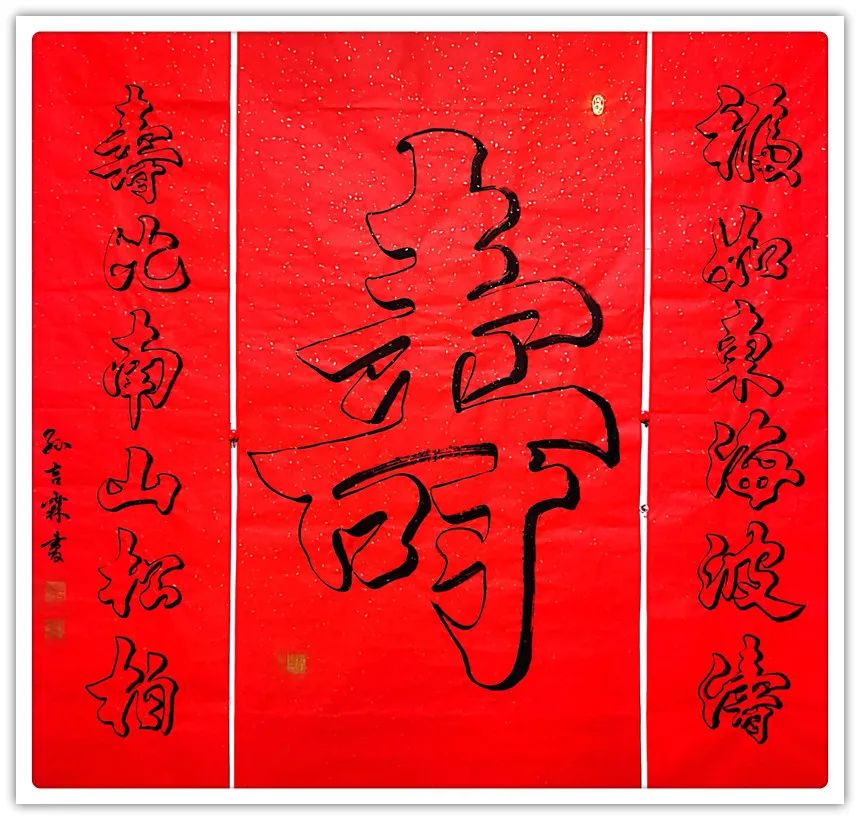 福如東海波濤
壽
壽比南山松柏
孫吉霖書